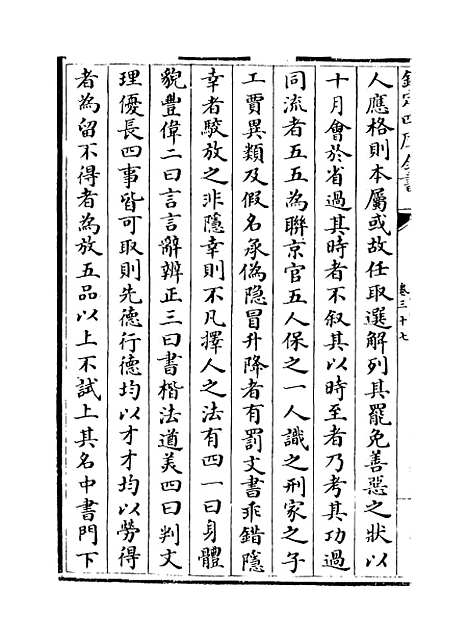 欽定四庫全書
卷三十七
人應格則本屬或故任取選解列其罷免善惡之狀以
十月會於省過其時者不叙其以時至者乃考其功過
同流者五五為聯京官五人保之一人識之刑家之子
工賈異類及假名承偽隐冒升降者有罰文書乖錯隱
幸者駮放之非隱幸則不凡擇人之法有四一曰身體
貌豐偉二曰言言辭辨正三曰書楷法遒美四曰判文
理優長四事皆可取則先德行德均以才才均以勞得
者為留不得者為放五品以上不試上其名中書門下